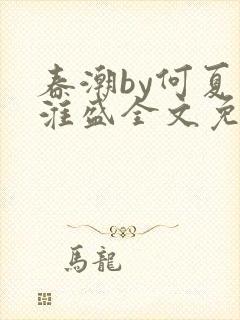 春潮by何夏
淮盛全文免
馬龍